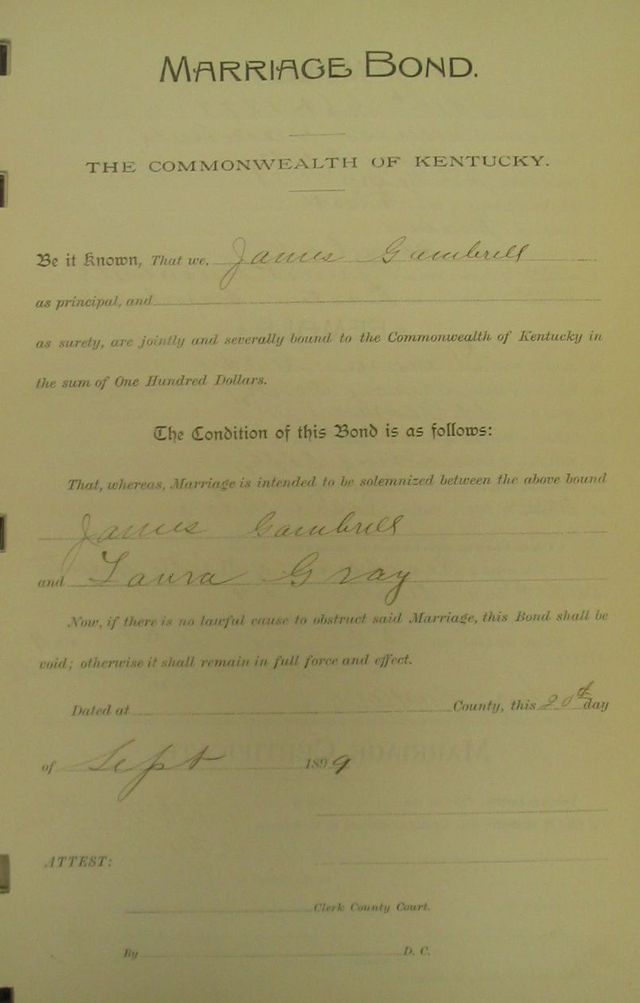 MARRIAGE BOND.
THE COMMONWEALTH OF KENTUCKY.
Be it Known, That we, James Gambrell
as principal, and
as surety, are jointly and severally bound to the Commonwealth of Kentucky in
the sum of One Hundred Dollars.
The Condition of this Bond is as follows:
That, whereas, Marriage is intended to be solemnized between the above bound
James Gambrell
and Laura Gray
Now, if there is no lawful cause to obstruct said Marriage, this Bond shall be
void; otherwise it shall remain in full force and effect.
Dated at County, this 20th day
of Sept 1899
ATTEST:
Clerk County Court.
By D. C.